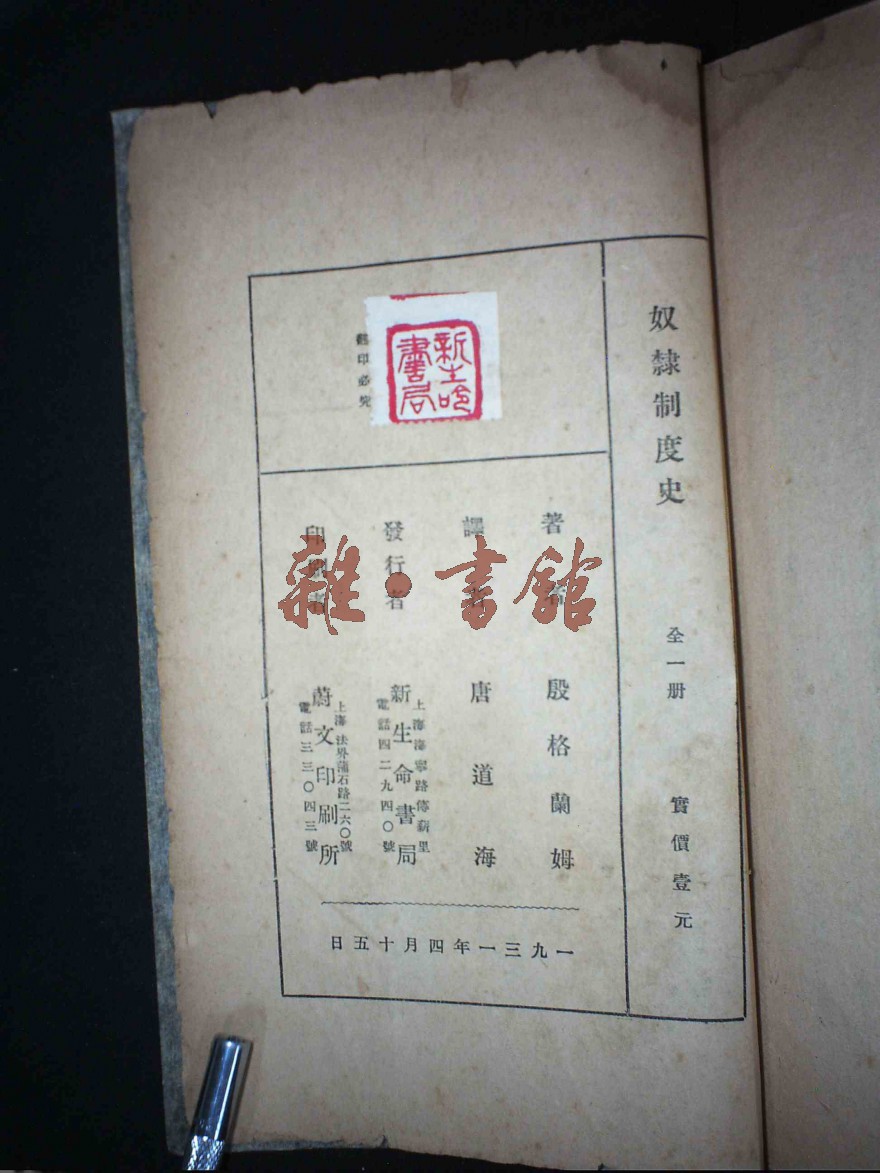 奴隸制度史
全一册
實價壹元
新生命書局
翻印必究
著者
殷格蘭姆
譯者
唐道海
發行者
上海海寧路傳薪里
新生命書局
電話四二九四〇號
印刷者
上海法界蒲石路二六〇號
蔚文印刷所
電話三三〇四三號
一九三一年四月十五日
雜·書館